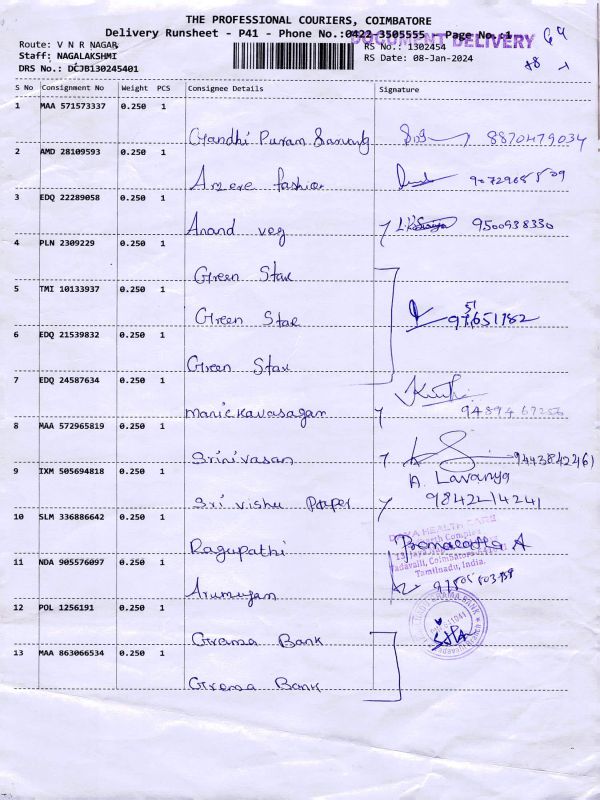 THE PROFESSIONAL COURIERS, COIMBATORE
Delivery Runsheet - P41 - Phone No.:0422-3505555 - Page No.:1
DOCUMENT DELIVERY
Route: V N R NAGAR
RS No.: 1302454
Staff: NAGALAKSHMI
RS Date: 08-Jan-2024
DRS No.: DCJB130245401
S No Consignment No Weight PCS Consignee Details Signature
1 MAA 571573337 0.250 1
Gandhi Puram 8870479034
2 AMD 28109593 0.250 1
fashion
3 EDQ 22289058 0.250 1
Anand veg 9500938330
4 PLN 2309229 0.250 1
Green Star
5 TMI 10133937 0.250 1
Green Star
6 EDQ 21539832 0.250 1
Green Star
7 EDQ 24587634 0.250 1
Manickavasagan
8 MAA 572965819 0.250 1
Srinivasan 9443842461
A. Lavanya
9 IXM 505694818 0.250 1
Sri vishu Paper 9842214241
10 SLM 336886642 0.250 1
Ragupathi
Tamilnadu, India.
11 NDA 905576097 0.250 1
Arumugam
12 POL 1256191 0.250 1
Grama Bank
13 MAA 863066534 0.250 1
Grama Bank